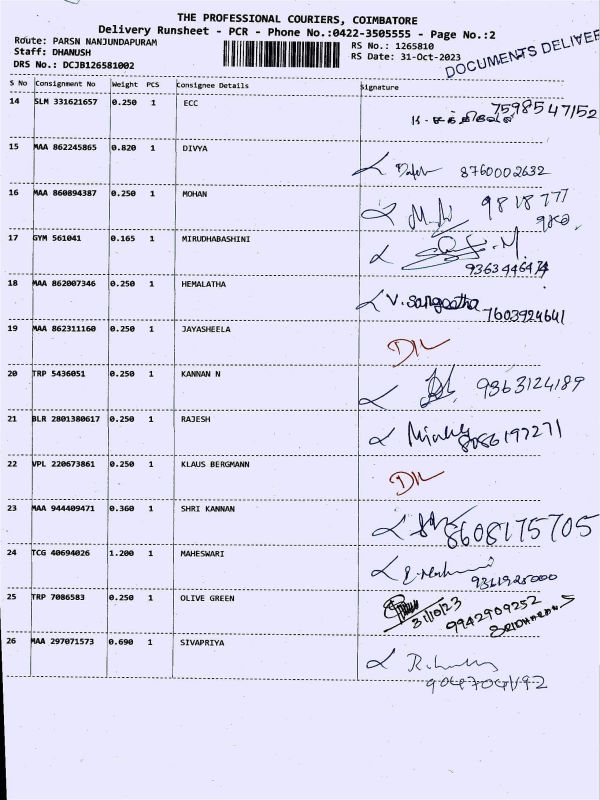 THE PROFESSIONAL COURIERS, COIMBATORE
Delivery Runsheet - PCR - Phone No.:0422-3505555 - Page No.:2
Route: PARSN NANJUNDAPURAM
RS No.: 1265810
Staff: DHANUSH
RS Date: 31-Oct-2023
DRS No.: DCJB126581002
DOCUMENTS DELIVE
S No Consignment No Weight PCS Consignee Details Signature
14 SLM 331621657 0.250 1 ECC 7598547152
15 MAA 862245865 0.820 1 DIVYA 8760002632
16 MAA 860894387 0.250 1 MOHAN 9818777
17 GYM 561041 0.165 1 MIRUDHABASHINI 9363446474
18 MAA 862007346 0.250 1 HEMALATHA V. Sangeetha 7603924641
19 MAA 862311160 0.250 1 JAYASHEELA D/L
20 TRP 5436051 0.250 1 KANNAN N 9363124189
21 BLR 2801380617 0.250 1 RAJESH 8086197271
22 VPL 220673861 0.250 1 KLAUS BERGMANN D/L
23 MAA 944409471 0.360 1 SHRI KANNAN 8608175705
24 TCG 40694026 1.200 1 MAHESWARI
25 TRP 7086583 0.250 1 OLIVE GREEN 31/10/23
9942909252
26 MAA 297071573 0.690 1 SIVAPRIYA